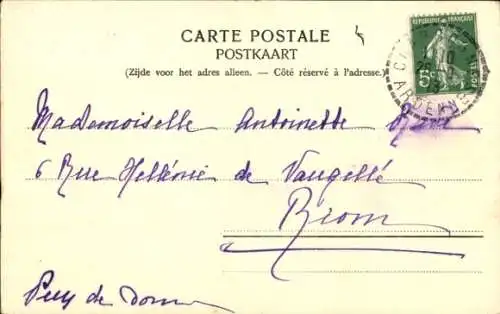 CARTE POSTALE
POSTKAART
(Zijde voor het adres alleen. — Côté réservé à l'adresse.)
REPUBLIQUE FRANÇAISE
5c
ARDENNES
Mademoiselle Antoinette
6 Rue Hellénie de Vaugellé
Riom
Puy de Dome